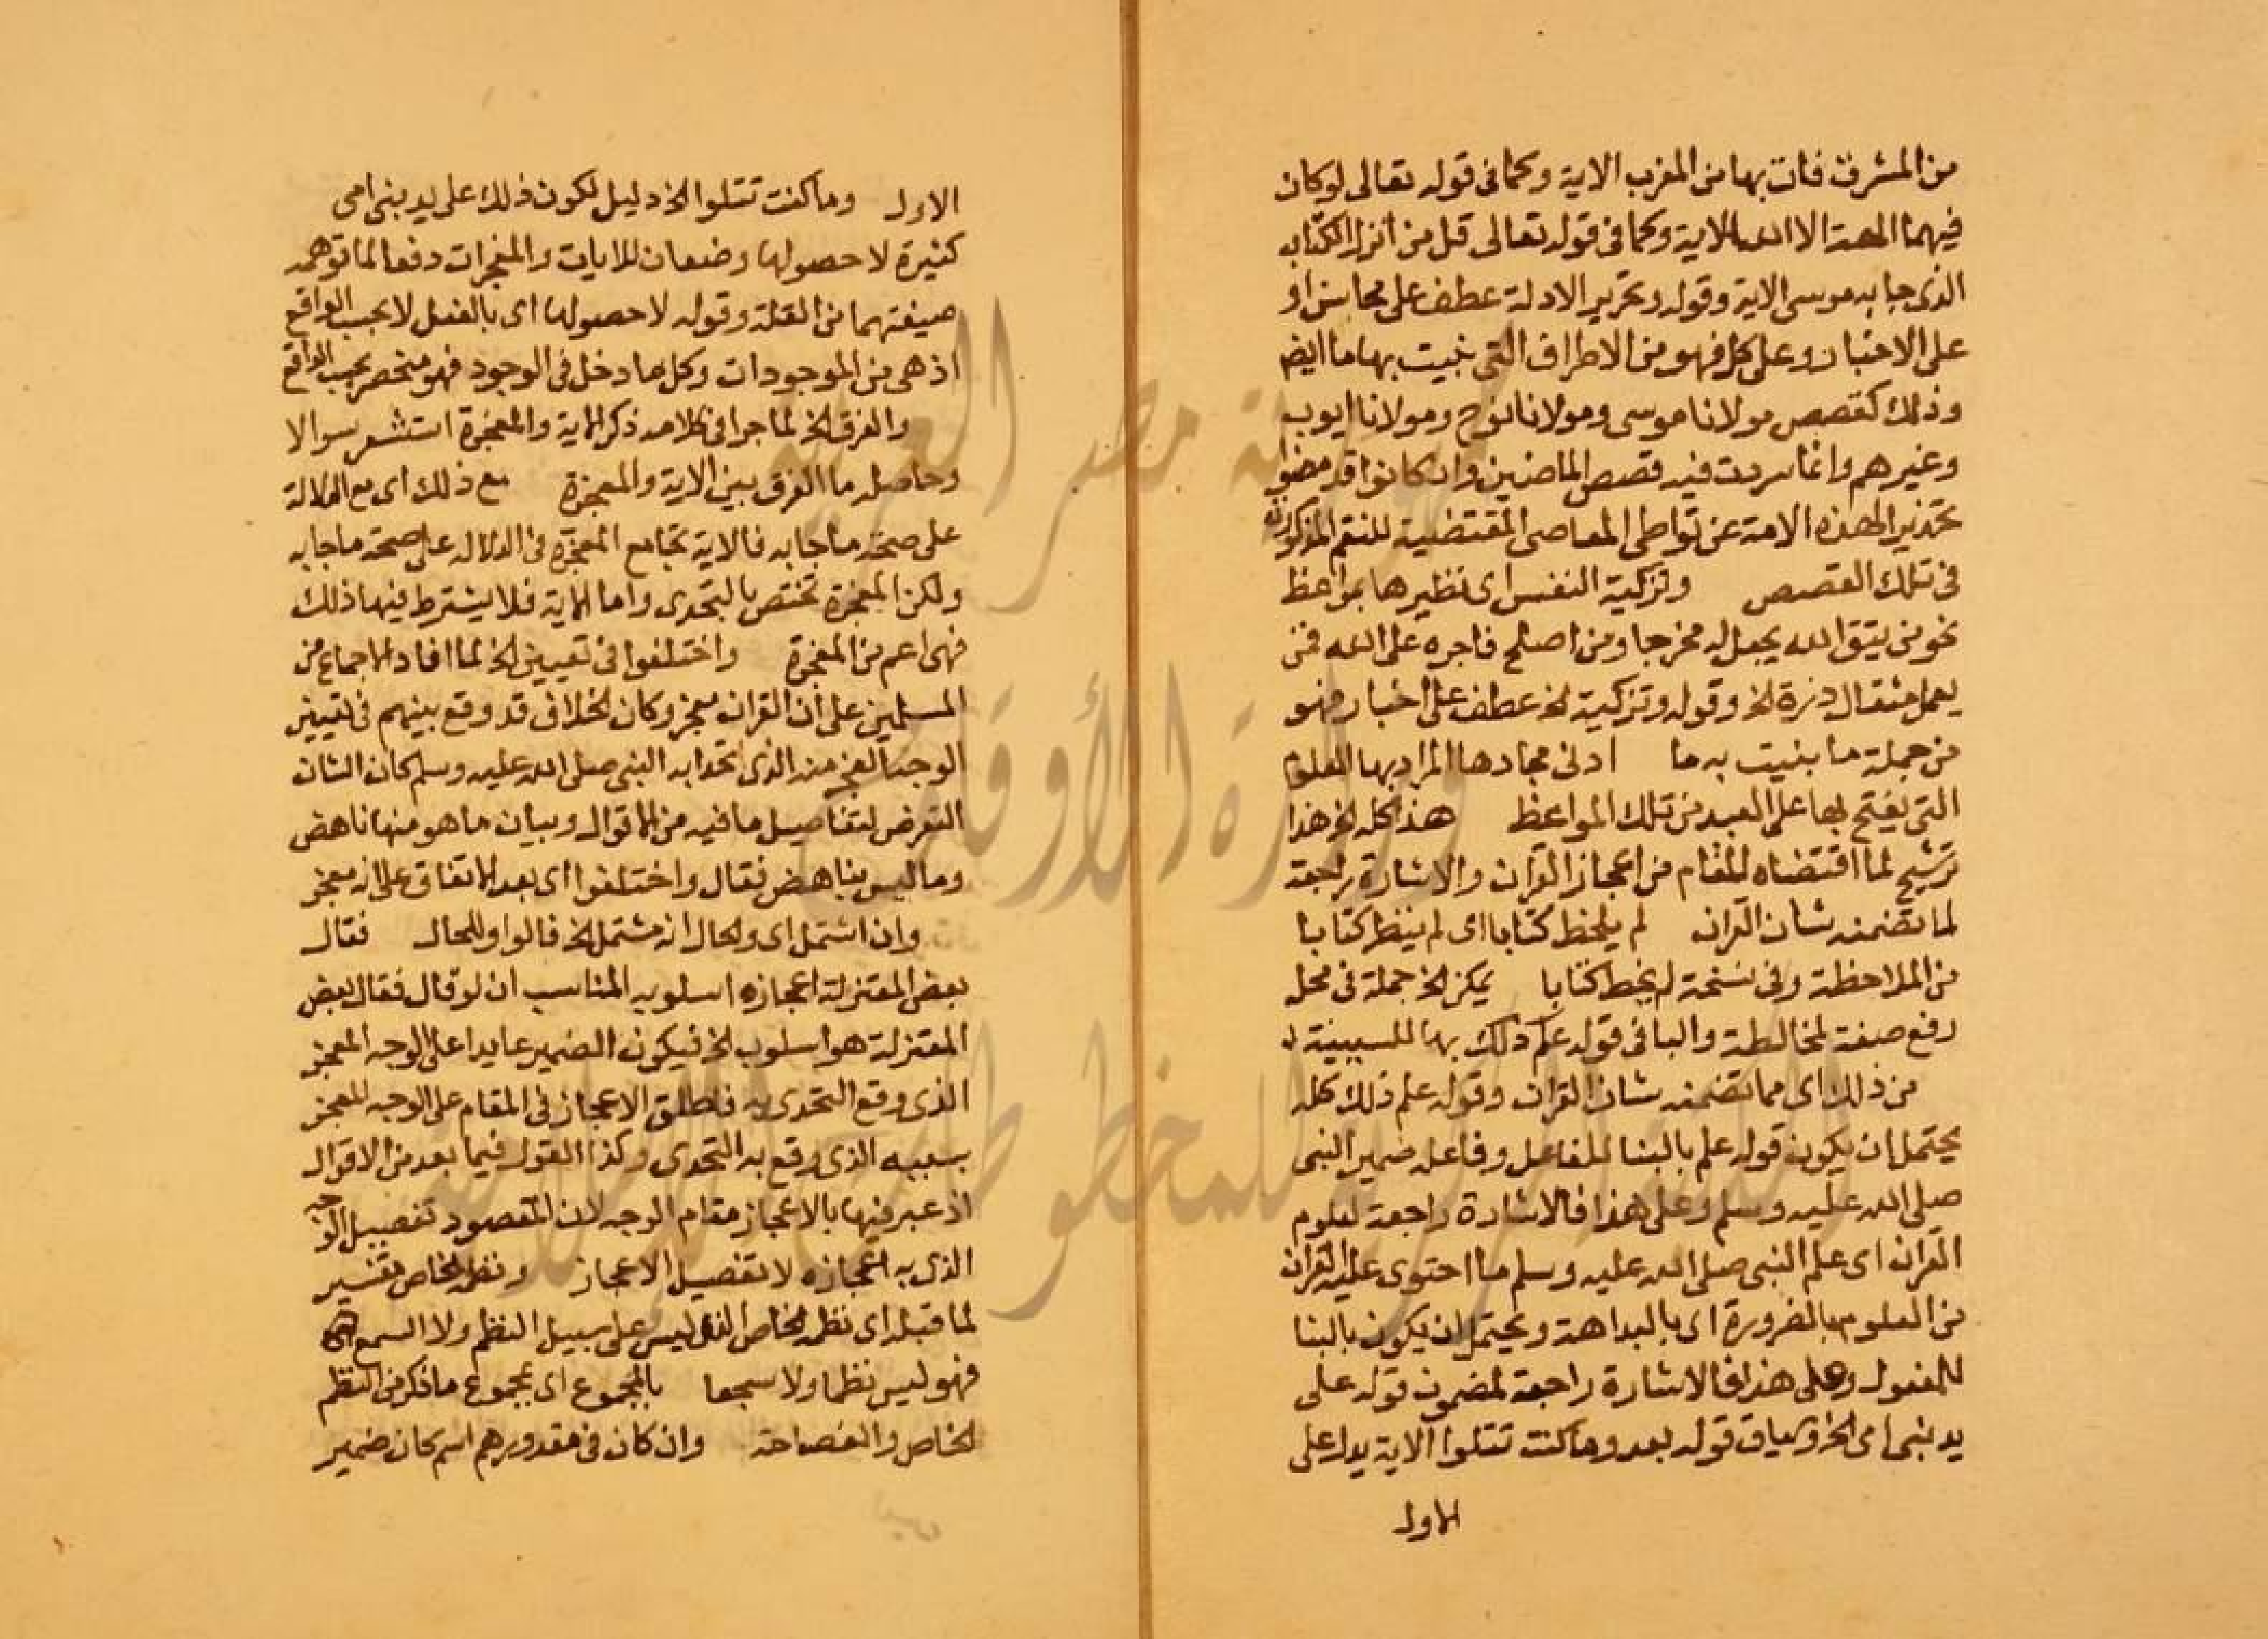 من المشرق فات بها من المغرب الاية وكما في قوله تعالى لوكان
فيهما الهة الا الله الاية وكما في قوله تعالى قل من انزل الكتاب
الذي جا به موسى الاية وقوله وتحرير الادلة عطف على محاسن او
على الاخبار وعلى كل فهو من الاطراف التي بنيت بها ما ايضا
وذلك كقصص مولانا موسى ومولانا نوح ومولانا ايوب
وغيرهم وانما سردت فيه قصص الماضين وان كانوا قد مضوا
تحذيرا لهذه الامة عن تواطى المعاصى المقتضية للنقم المذكورة
في تلك القصص وتزكية النفس اى تطهيرها بمواعظ
نحو من يتق الله يجعل له مخرجا ومن اصلح فاجره على الله فمن
يعمل مثقال ذرة الخ وقوله وتزكية الخ عطف على اخبار فهو
من جملة ما بنيت به ما ادنى مجادها المراد بها العلوم
التي يفتح بها على العبد من تلك المواعظ هذا كله الخ هذا
ترشيح لما اقتضاه المقام من اعجاز القران والاشارة راجعة
لما تضمنه شان القران لم يلحظ كتابا اى لم ينظر كتابا
من الملاحظة وفي نسخة لم يخط كتابا يمكن الخ جملة في محل
رفع صفة لمخالطة والبا في قوله علم ذلك بها للسببية
من ذلك اى مما تضمنه شان القران وقوله علم ذلك كله
يحتمل ان يكون قوله علم بالبنا للفاعل وفاعله ضمير النبى
صلى الله عليه وسلم وعلى هذا فالاشارة راجعة لعلوم
القران اى علم النبى صلى الله عليه وسلم ما احتوى عليه القران
من العلوم بالضرورة اى بالبداهة ويحتمل ان يكون بالبنا
للمفعول وعلى هذا فالاشارة راجعة لمضمون قوله على
يد نبى امى الخ وسياق قوله بعد وما كنت تتلوا الاية يدل على
الاول
الاول وما كنت تتلوا الخ دليل لكون ذلك على يد نبى امى
كثيرة لا حصر لها وصفان للايات والمعجزات دفعا لما توهمه
صيغتهما من القلة وقوله لا حصر لها اى بالفعل لا بحسب الواقع
اذ هى من الموجودات وكل ما دخل في الوجود فهو منحصر بحسب الواقع
والفرق الخ لما جرا في كلامه ذكر الاية والمعجزة استشعر سوالا
وحاصله ما الفرق بين الاية والمعجزة مع ذلك اى مع الدلالة
على صحة ما جا به فالاية تجامع المعجزة في الدلالة على صحة ما جا به
ولكن المعجزة تختص بالتحدى واما الاية فلا يشترط فيها ذلك
فهى اعم من المعجزة واختلفوا في تعيين الخ لما افاد الاجماع من
المسلمين على ان القران معجز وكان الخلاف قد وقع بينهم في تعيين
الوجه المعجز منه الذى تحدا به النبى صلى الله عليه وسلم كان الشان
التعرض لتفاصيل ما فيه من الاقوال وبيان ما هو منها ناهض
وما ليس بناهض فقال واختلفوا اى بعد الاتفاق على انه معجز
وان اشتمل اى والحال انه مشتمل الخ فالواو للحال فقال
بعض المعتزلة اعجازه اسلوبه المناسب ان لو قال فقال بعض
المعتزلة هو اسلوب الخ فيكون الضمير عايدا على الوجه المعجز
الذى وقع التحدى به فاطلق الاعجاز في المقام على الوجه المعجز
بسببه الذى وقع به التحدى وكذا القول فيما بعد من الاقوال
اذ عبر فيها بالاعجاز مقام الوجه لان المقصود تفصيل الوجه
الذى به اعجازه لا تفصيل الاعجاز ونظمه الخاص تفسير
لما قبله اى نظمه الخاص الذى ليس على سبيل النظم ولا السجع
فهو ليس نظما ولا سجعا بالمجموع اى بمجموع ما ذكر من النظم
الخاص والفصاحة وان كان في مقدورهم اسم كان ضمير